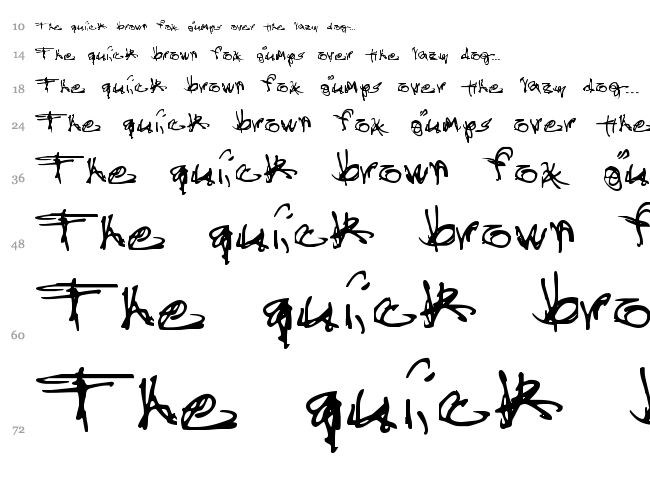 10 The quick brown fox jumps over the lazy dog...
14 The quick brown fox jumps over the lazy dog...
18 The quick brown fox jumps over the lazy dog...
24 The quick brown fox jumps over the
36 The quick brown fox ju
48 The quick brown f
60 The quick bro
72 The quick b